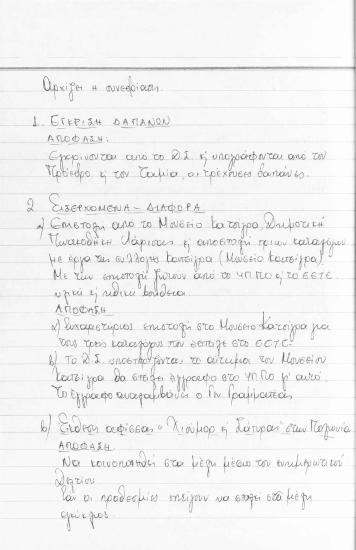 Αρχίζει η συνεδρίαση.
1. ΕΓΚΡΙΣΗ ΔΑΠΑΝΩΝ
ΑΠΟΦΑΣΗ:
Εγκρίνονται από το Δ.Σ. κ υπογράφονται από τον
Πρόεδρο κ τον Ταμία, οι τρέχουσες δαπάνες.
2. ΕΙΣΕΡΧΟΜΕΝΑ - ΔΙΑΦΟΡΑ
α) Επιστολή από το Μουσείο Κατσίγρα, Δημοτική
Πινακοθήκη Λάρισας κ αποστολή τριών καταλόγων
με έργα της συλλογής Κατσίγρα (Μουσείο Κατσίγρα).
Με την επιστολή ζητούν από το ΥΠ.ΠΟ κ το ΕΕΤΕ
υλική κ ηθική βοήθεια.
ΑΠΟΦΑΣΗ
α) Ευχαριστήρια επιστολή στο Μουσείο Κατσίγρα για
τους τρεις καταλόγους που έστειλε στο ΕΕΤΕ.
β) Το Δ.Σ. υποστηρίζοντας το αίτημα του Μουσείου
Κατσίγρα θα στείλει έγγραφο στο ΥΠ.ΠΟ γι' αυτό.
Το έγγραφο αναλαμβάνει ο Γεν. Γραμματέας.
β) Έκθεση αφίσσας "Χιούμορ κ Σάτιρα" στην Πολωνία
ΑΠΟΦΑΣΗ
Να κοινοποιηθεί στα μέλη μέσω του ενημερωτικού
Δελτίου.
Εάν οι προθεσμίες επείγουν να σταλεί στα μέλη